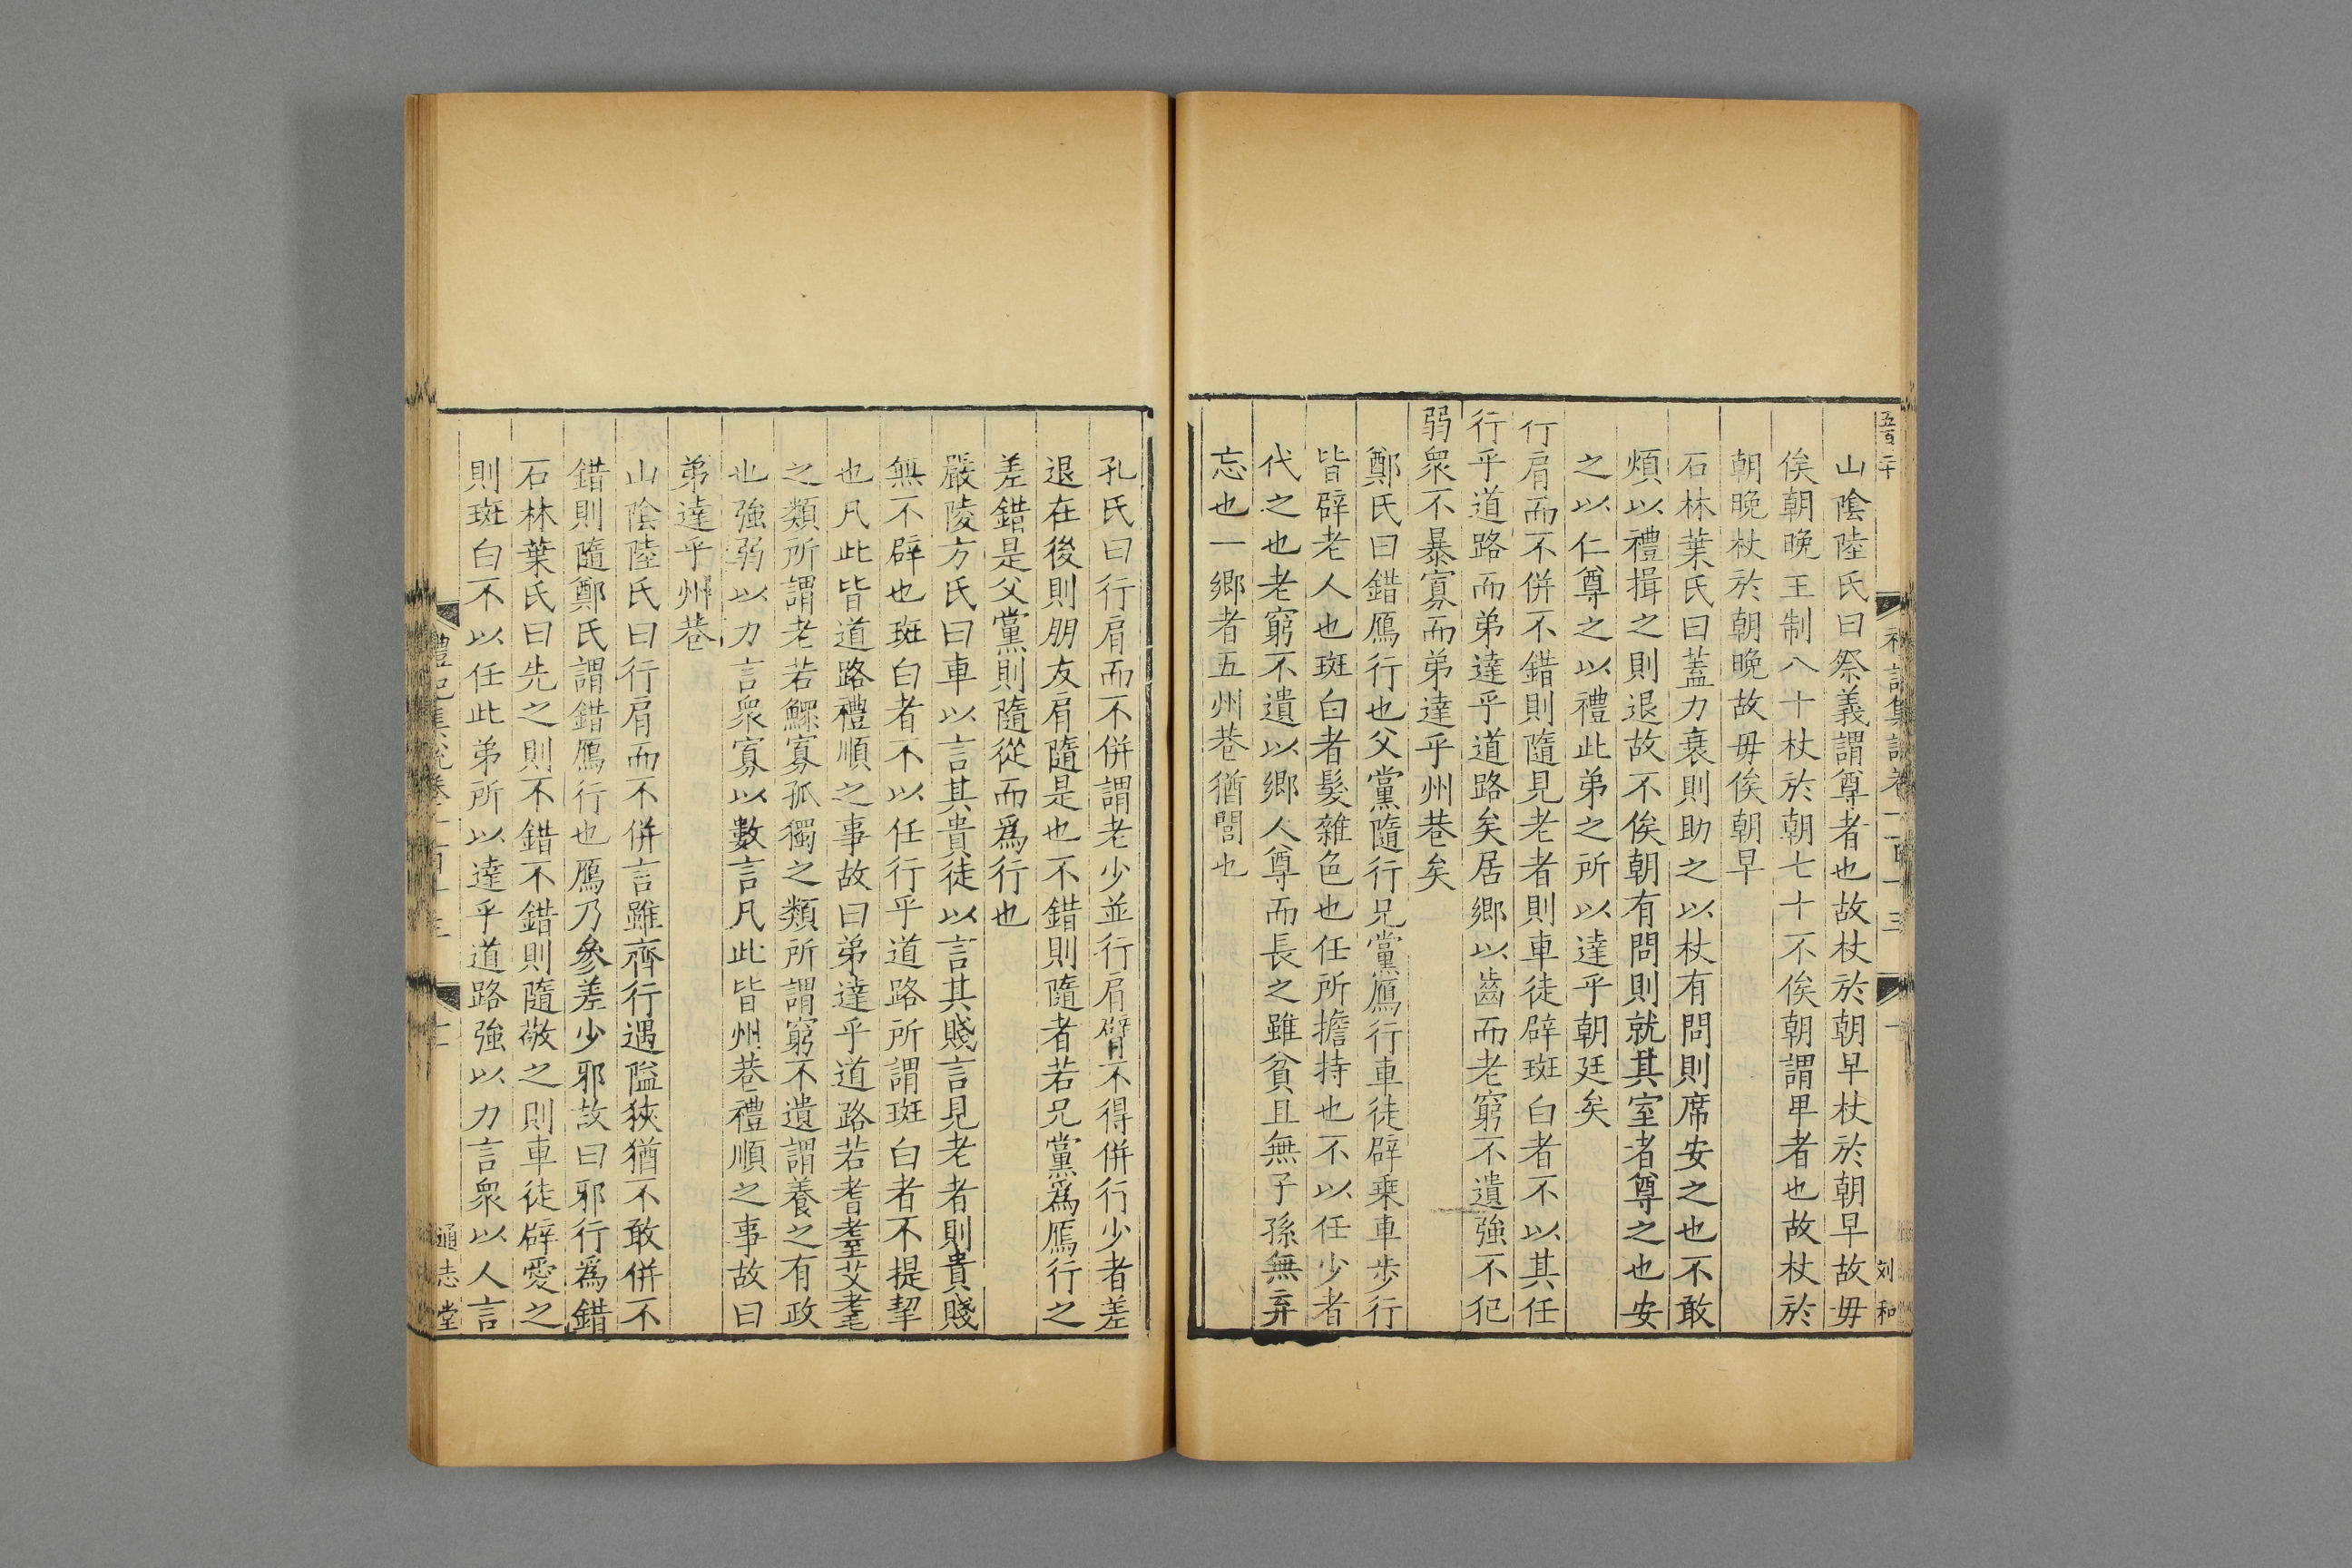 五百二十
禮記集說卷一百一十三
一
刘和
山陰陸氏曰祭義謂尊者也故杖於朝早杖於朝早故毋
俟朝晚王制八十杖於朝七十不俟朝謂卑者也故杖於
朝晚杖於朝晚故毋俟朝早
石林葉氏曰蓋力衰則助之以杖有問則席安之也不敢
煩以禮揖之則退故不俟朝有問則就其室者尊之也安
之以仁尊之以禮此弟之所以達乎朝廷矣
行肩而不併不錯則隨見老者則車徒辟斑白者不以其任
行乎道路而弟達乎道路矣居鄉以齒而老窮不遺強不犯
弱衆不暴寡而弟達乎州巷矣
鄭氏曰錯鴈行也父黨隨行兄黨鴈行車徒辟乗車步行
皆辟老人也斑白者髮雜色也任所擔持也不以任少者
代之也老窮不遺以鄉人尊而長之雖貧且無子孫無弃
忘也一鄉者五州巷猶閭也
孔氏曰行肩而不併謂老少並行肩臂不得併行少者差
退在後則朋友肩隨是也不錯則隨者若兄黨爲鴈行之
差錯是父黨則隨從而爲行也
嚴陵方氏曰車以言其貴徒以言其賤言見老者則貴賤
無不辟也斑白者不以任行乎道路所謂斑白者不提挈
也凡此皆道路禮順之事故曰弟達乎道路若耆耋艾耄
之類所謂老若鰥寡孤獨之類所謂窮不遺謂養之有政
也強弱以力言衆寡以數言凡此皆州巷禮順之事故曰
弟達乎州巷
山陰陸氏曰行肩而不併言雖齊行遇隘狹猶不敢併不
錯則隨鄭氏謂錯鴈行也鴈乃參差少邪故曰邪行爲錯
石林葉氏曰先之則不錯不錯則隨敬之則車徒辟愛之
則斑白不以任此弟所以達乎道路強以力言衆以人言
禮記集說卷一百十三
二
通志堂